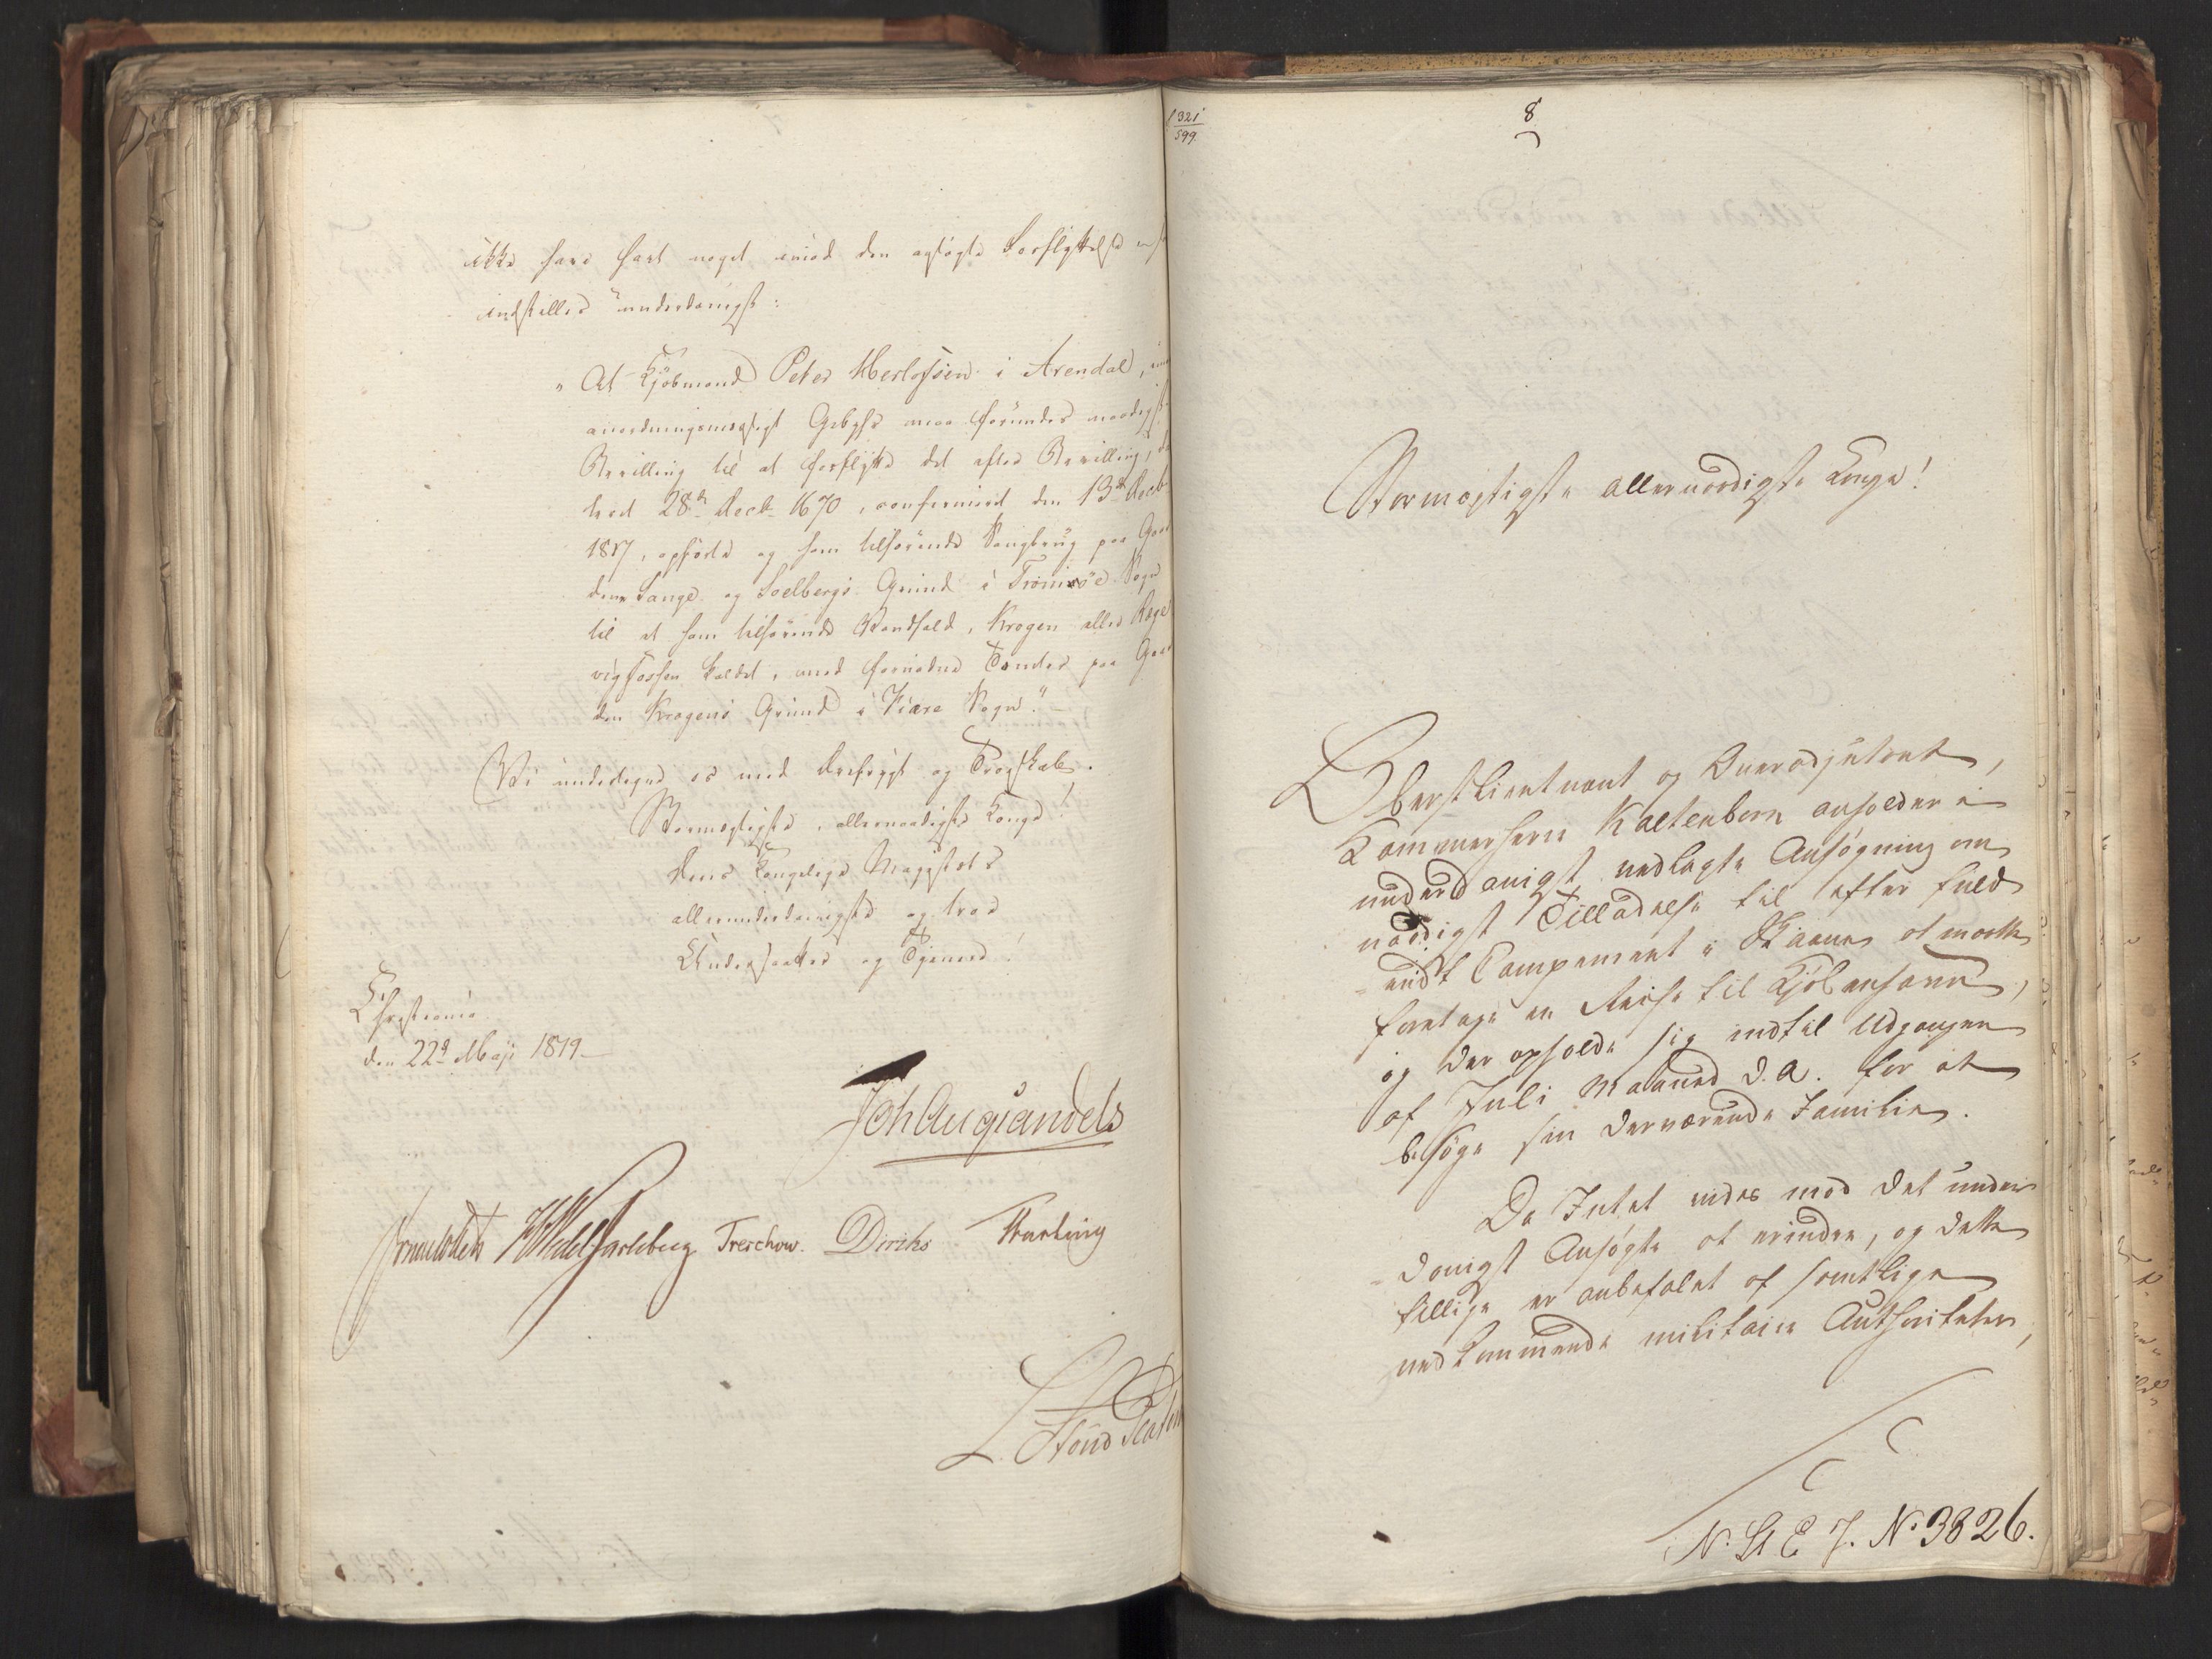 ikke have havt noget imod den ansøgte Forflyttelse
indstilles underdanigst:
"At Kjöbmand Peter Herlofsen i Arendal,
anordningsmæsigt Gebyhr maa forundes naadigst
Bevilling til at forflytte det efter Bevilling,
28de Decbr 1670, confirmeret den 13de Decb
1817, opførte og ham tilhørende Saugbrug paa Gaar
dene Lange og Soelbergs Grund i Tromöe Sogn
til et ham tilhørende Vandfald, Krogen eller Rege
vigfossen kaldet, med fornødne Tomter paa Gaar
den Krogens Grund i Hiære Sogn." —
Vi undertegne os med Ærefrygt og Troeskab.
Stormægtigste, allernaadigste Konge!
Deres Kongelige Majestæts
allerunderdanigste og troe
Undersaatter og Tjenere!
Christiania
den 22de Maji 1819.—
Joh Aug Sandels
Sommerhielm HWedel Jarlsberg Treschow. Diriks
L. Stoud Platou
321
599
8
Stormægtigste allernaadigste Konge!
Oberstlieutnant og Overadjutant,
Kammerherre Kaltenborn anholder i
underdanigst nedlagte Ansøgning om
naadigst Tilladelse til efter fuld
endt Campement i Skaane at maatte
foretage en Reise til Kjöbenhavn,
og der opholde sig indtil Udgangen
af Juli Maaned d. A. for at
besøge sin derværende Familie.
Da Intet vides mod det under
danigst Ansøgte at erindre, og dette
tillige er anbefalet af samtlige
vedkommende militaire Authoriteter,
N. St E J. No 3826.